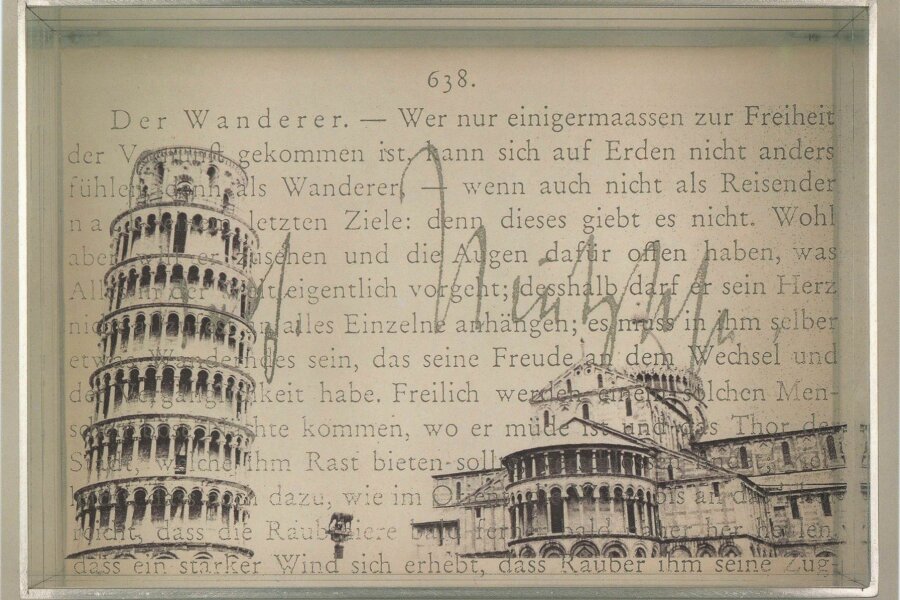 638.
Der Wanderer. — Wer nur einigermaassen zur Freiheit
der gekommen ist, kann sich auf Erden nicht anders
fühlen, denn als Wanderer, — wenn auch nicht als Reisender
letzten Ziele: denn dieses giebt es nicht. Wohl
aber will er zusehen und die Augen dafür offen haben, was
Alles in der eigentlich vorgeht; desshalb darf er sein Herz
alles Einzelne anhängen; es muss in ihm selber
etwas Wanderndes sein, das seine Freude an dem Wechsel und
der keit habe. Freilich werden einem solchen Men-
kommen, wo er müde ist und das Thor der
Stadt, welche ihm Rast bieten soll
dazu, wie im bis an das
reicht, dass die Raubthiere bald fern bald her heulen,
dass ein starker Wind sich erhebt, dass Räuber ihm seine Zug-
F. Nietzsche